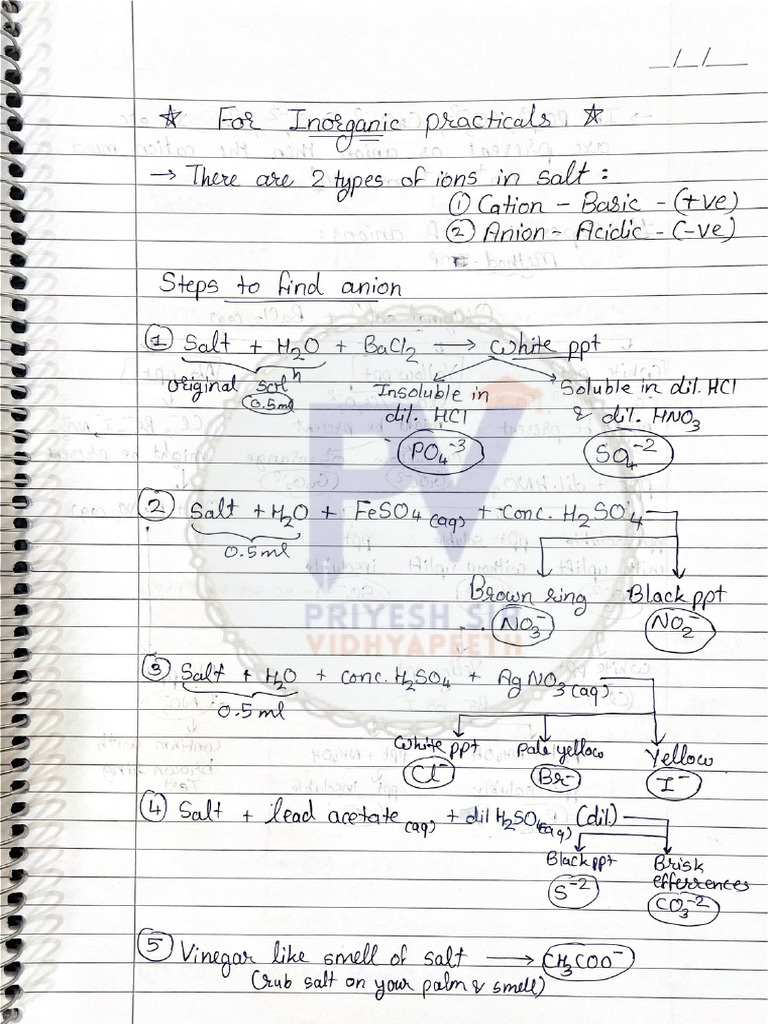 _/_/__
☆ For Inorganic practicals ☆
→ There are 2 types of ions in salt :
① Cation - Basic - (+ve)
② Anion - Acidic - (-ve)
Steps to find anion
① Salt + H2O + BaCl2 → white ppt
original soln
0.5ml
Insoluble in dil. HCl
PO4^-3
Soluble in dil. HCl & dil. HNO3
SO4^-2
② Salt + H2O + FeSO4(aq) + conc. H2SO4
0.5ml
Brown ring Black ppt
NO3^- NO2^-
PRIYESH SIR
VIDHYAPEETH
③ Salt + H2O + conc. H2SO4 + AgNO3(aq)
0.5ml
White ppt Pale yellow Yellow
Cl^- Br^- I^-
④ Salt + lead acetate(aq) + dil H2SO4(aq) (dil)
Black ppt
S^-2
Brisk efferrences
CO3^-2
⑤ Vinegar like smell of salt → CH3COO^-
(rub salt on your palm & smell)